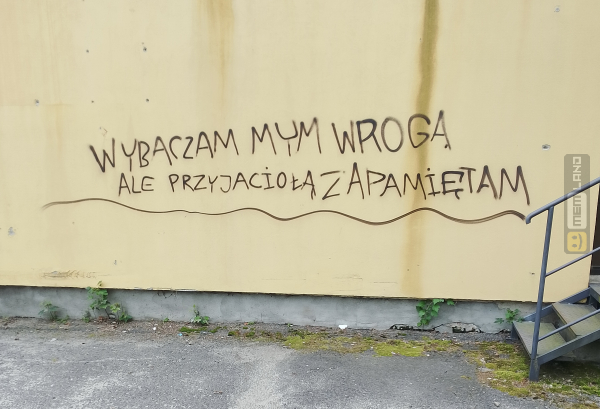 WYBACZAM MYM WROGĄ
ALE PRZYJACIOŁĄ ZAPAMIĘTAM
MEMLAND